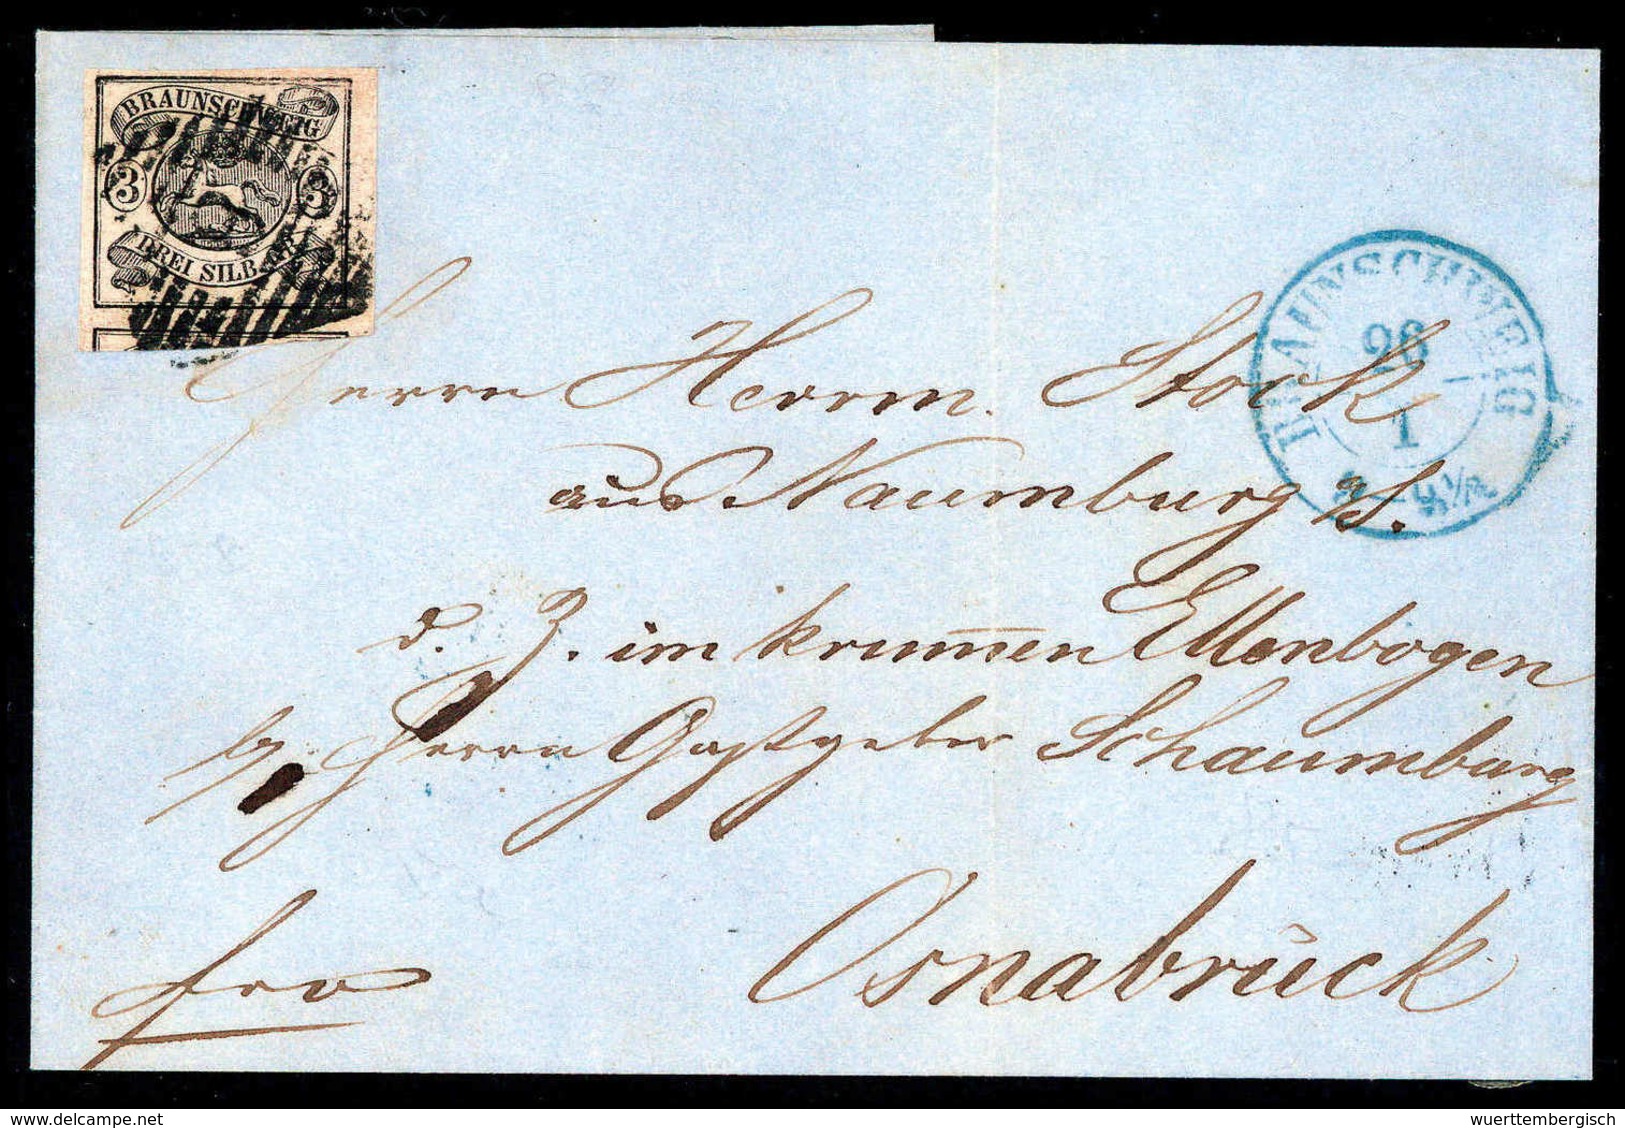 BRAUNSCHWEIG
3 3
DREI SILB. GR.
BRAUNSCHWEIG
26
1
Herrn Herrm. Stock
aus Naumburg a/S.
d. Z. im krum̅en Ellenbogen
Herrn Gastgeber Schaumburg
fro
Osnabrück
delcampe.net
wuerttembergisch